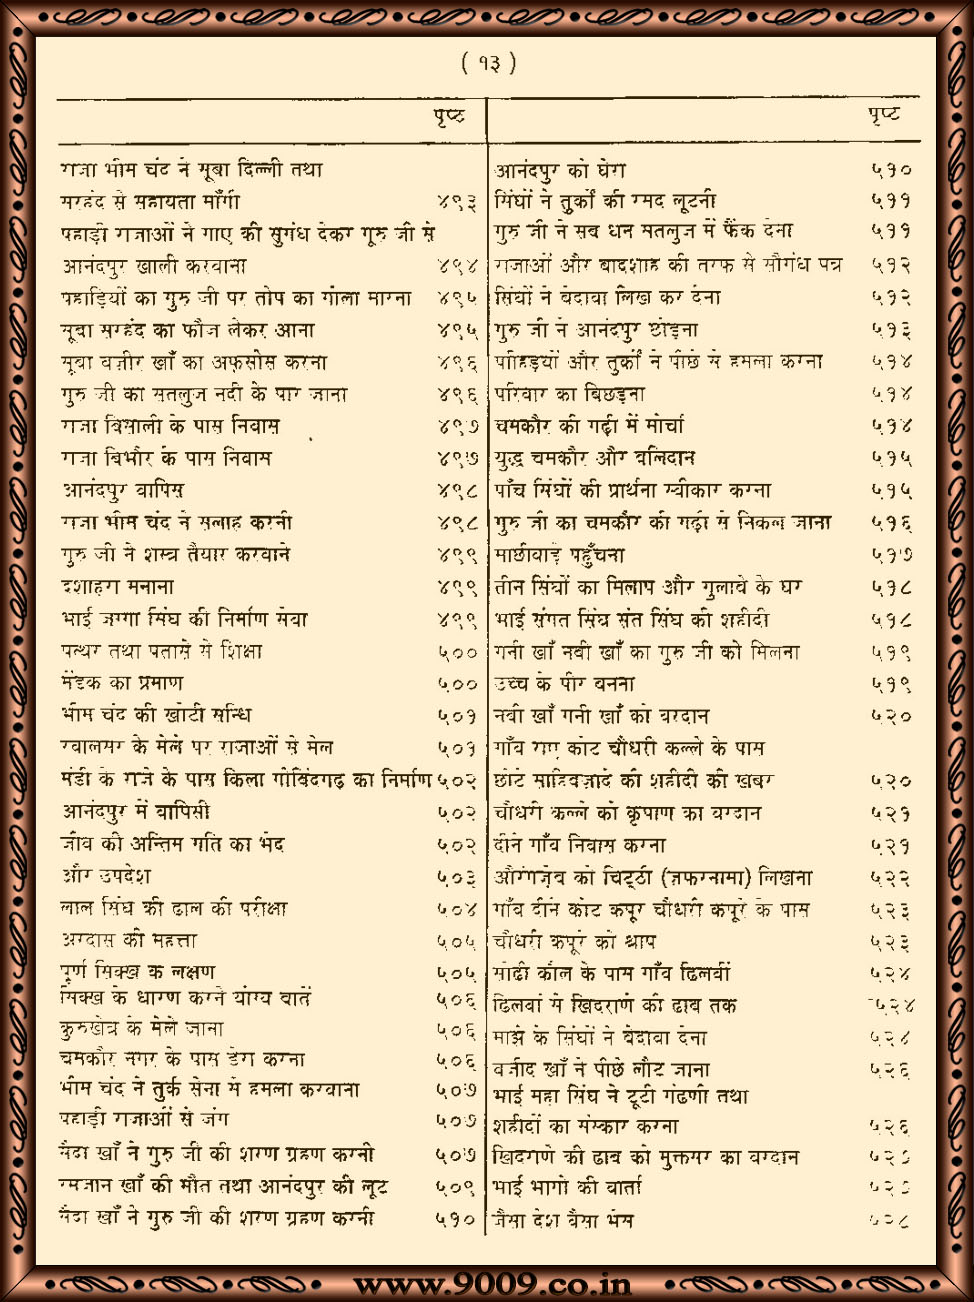 ( १३ )
पृष्ठ
राजा भीम चंद ने सूबा दिल्ली तथा
सरहंद से सहायता माँगी ४९३
पहाड़ी राजाओं ने गाए की सुगंध देकर गुरू जी से
आनंदपुर खाली करवाना ४९४
पहाड़ियों का गुरु जी पर तोप का गोला मारना ४९५
सूबा सरहंद का फौज लेकर आना ४९५
सूबा वज़ीर खाँ का अफ़सोस करना ४९६
गुरु जी का सतलुज नदी के पार जाना ४९६
राजा बिसाली के पास निवास ४९७
राजा बिभौर के पास निवास ४९७
आनंदपुर वापिस ४९८
राजा भीम चंद ने सलाह करनी ४९८
गुरु जी ने शस्त्र तैयार करवाने ४९९
दशाहरा मनाना ४९९
भाई जग्गा सिंघ की निर्माण सेवा ४९९
पत्थर तथा पतासे से शिक्षा ५००
मेंडक का प्रमाण ५००
भीम चंद की खोटी सन्धि ५०१
रवालसर के मेले पर राजाओं से मेल ५०१
मंडी के राजे के पास किला गोबिंदगढ़ का निर्माण ५०२
आनंदपुर में वापिसी ५०२
जीव की अन्तिम गति का भेद ५०२
और उपदेश ५०३
लाल सिंघ की ढाल की परीक्षा ५०४
अरदास की महत्ता ५०५
पूर्ण सिक्ख क लक्षण ५०५
सिक्ख के धारण करने योग्य बातें ५०६
कुरुखेत्र के मेले जाना ५०६
चमकौर नगर के पास डेरा करना ५०६
भीम चंद ने तुर्क सेना से हमला करवाना ५०७
पहाड़ी राजाओं से जंग ५०७
सैदा खाँ ने गुरु जी की शरण ग्रहण करनी ५०७
रमजान खाँ की मौत तथा आनंदपुर की लूट ५०९
सैदा खाँ ने गुरु जी की शरण ग्रहण करनी ५१०
पृष्ट
आनंदपुर को घेरा ५१०
सिंघों ने तुर्कों की रसद लूटनी ५११
गुरु जी ने सब धन सतलुज में फैंक देना ५११
राजाओं और बादशाह की तरफ से सौगंध पत्र ५१२
सिंघों ने बेदावा लिख कर देना ५१२
गुरु जी ने आनंदपुर छोड़ना ५१३
पहिड़यों और तुर्कों ने पीछे से हमला करना ५१४
परिवार का बिछड़ना ५१४
चमकौर की गढ़ी में मोर्चा ५१४
युद्ध चमकौर और बलिदान ५१५
पाँच सिंघों की प्रार्थना स्वीकार करना ५१५
गुरु जी का चमकौर की गढ़ी से निकल जाना ५१६
माछीवाड़े पहुँचना ५१७
तीन सिंघों का मिलाप और गुलाबे के घर ५१८
भाई संगत सिंघ संत सिंघ की शहीदी ५१८
गनी खाँ नबी खाँ का गुरु जी को मिलना ५१९
उच्च के पीर बनना ५१९
नबी खाँ गनी खाँ को वरदान ५२०
गाँव राए कोट चौधरी कल्ले के पास
छोटे साहिबज़ादे की शहीदी की खबर ५२०
चौधरी कल्ले को कृपाण का वरदान ५२१
दीने गाँव निवास करना ५२१
औरंगज़ेब को चिट्ठी (ज़फरनामा) लिखना ५२२
गाँव दीने कोट कपूर चौधरी कपूरे के पास ५२३
चौधरी कपूरे को श्राप ५२३
सोढी कौल के पास गाँव ढिलवीं ५२४
ढिलवां से खिदराणे की ढाब तक ५२४
माझे के सिंघों ने बेदावा देना ५२४
वजीद खाँ ने पीछे लौट जाना ५२६
भाई महा सिंघ ने टूटी गंढणी तथा
शहीदों का संस्कार करना ५२६
खिदराणे की ढाब को मुक्तसर का वरदान
भाई भागो की वार्ता
जैसा देश वैसा भेस
www.9009.co.in